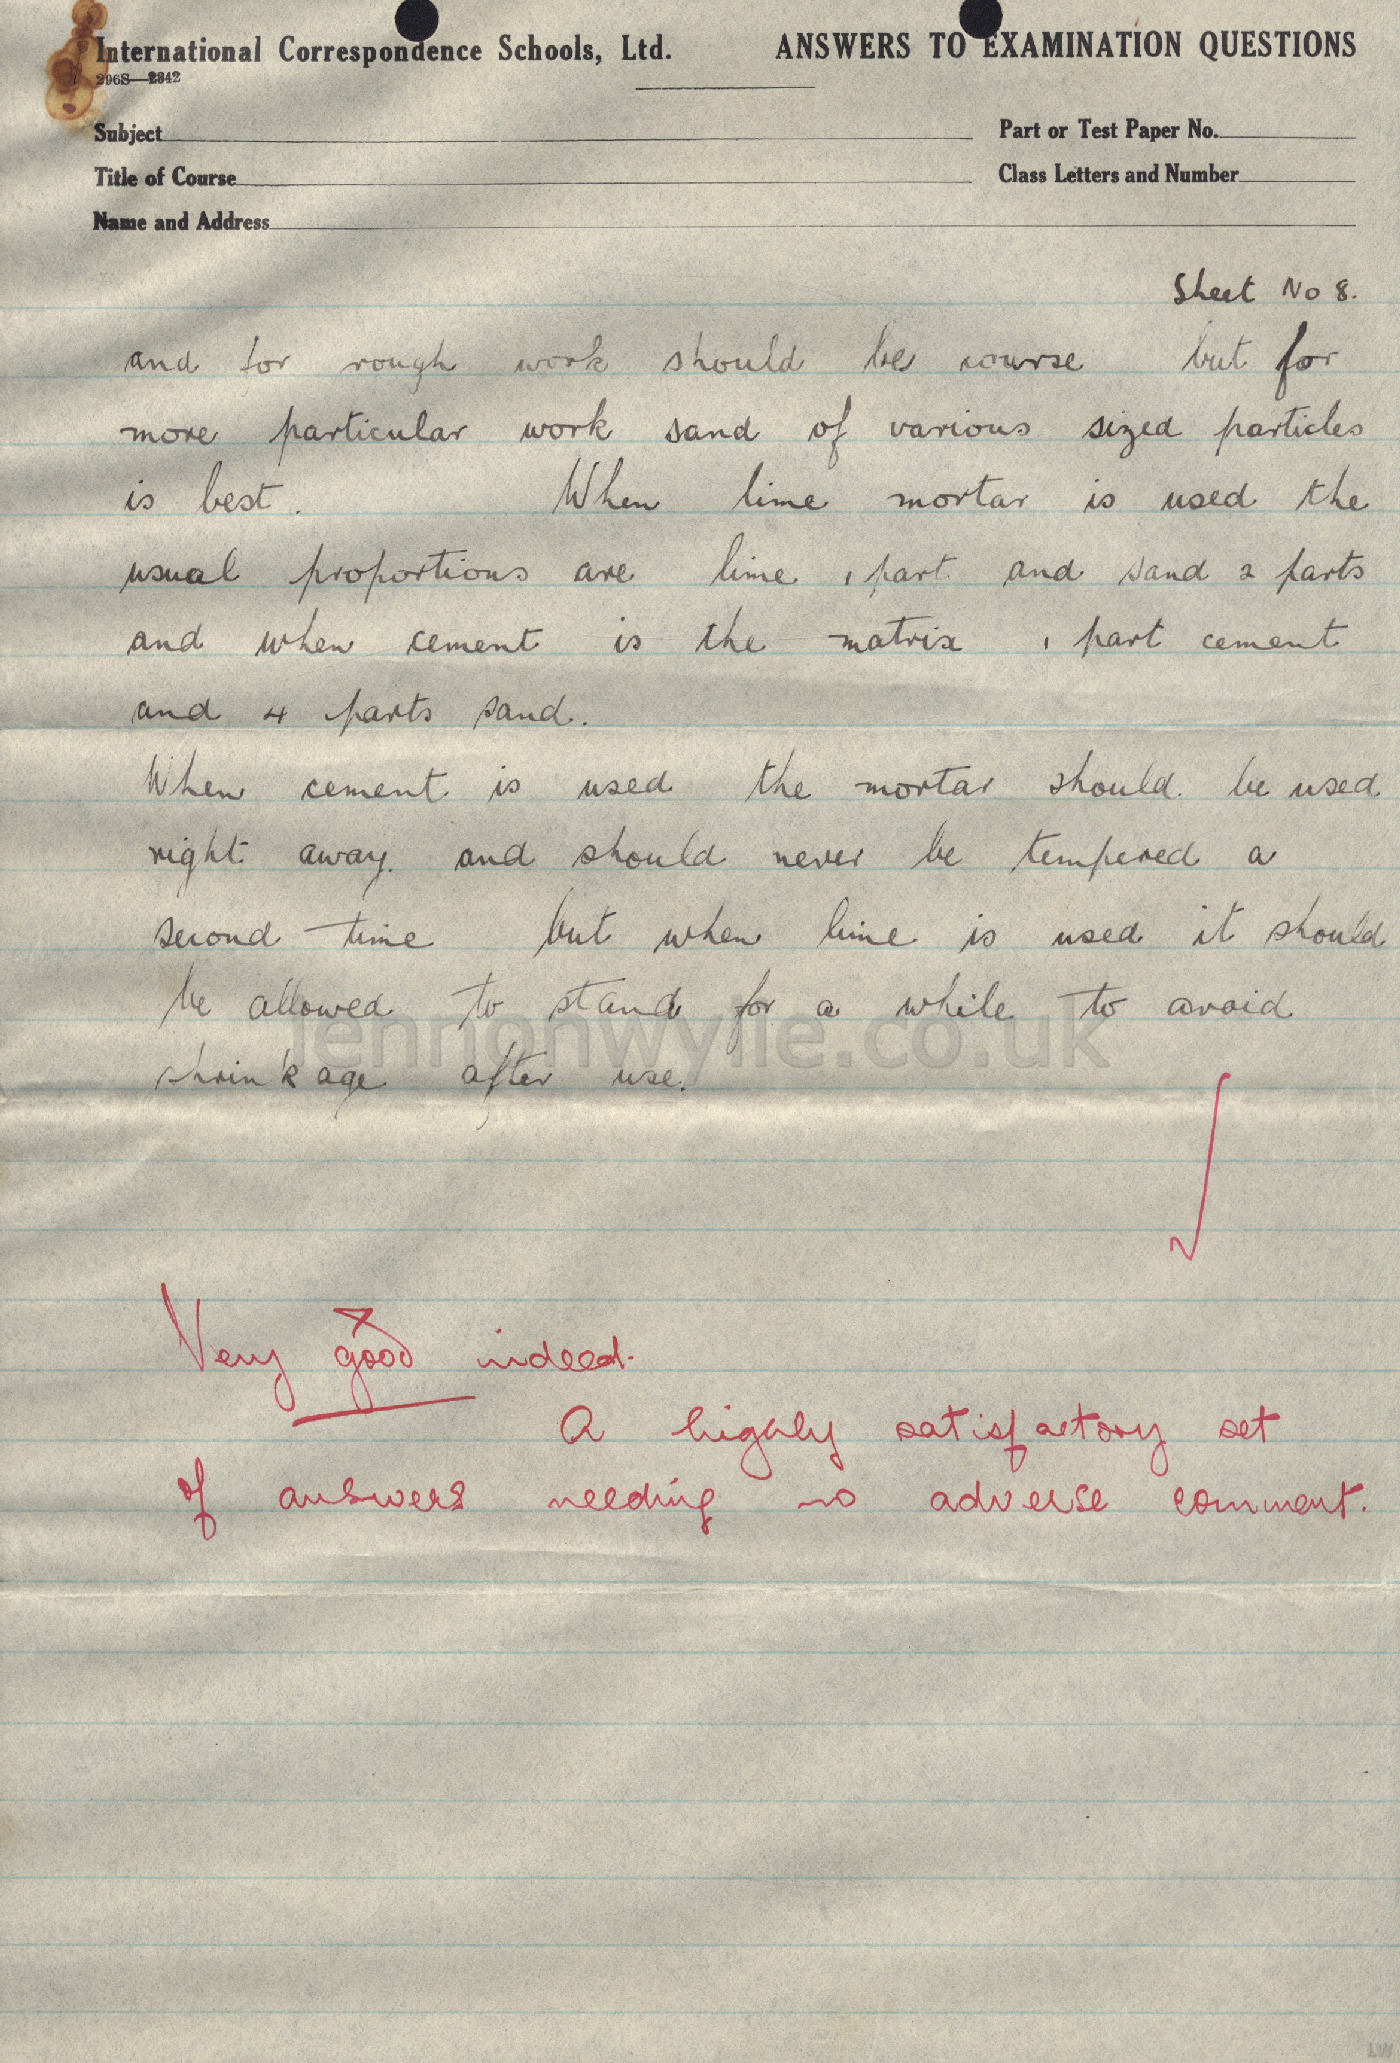 International Correspondence Schools, Ltd. ANSWERS TO EXAMINATION QUESTIONS
2968—2342
Subject Part or Test Paper No.
Title of Course Class Letters and Number
Name and Address
Sheet No 8.
and for rough work should be course but for
more particular work sand of various sized particles
is best. When lime mortar is used the
usual proportions are lime 1 part and sand 2 parts
and when cement is the matrix 1 part cement
and 4 parts sand.
When cement is used the mortar should be used
right away. and should never be tempered a
second time but when lime is used it should
be allowed to stand for a while to avoid
shrinkage after use.
lennonwylie.co.uk
Very good indeed.
A highly satisfactory set
of answers needing no adverse comment.
LW